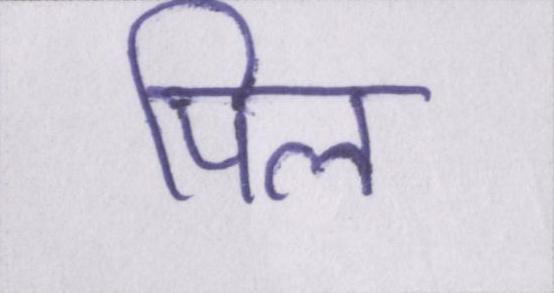 पिल